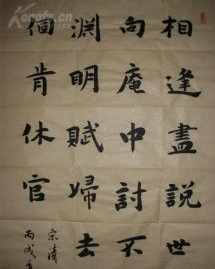 相逢盡説世
向庵中討不
淵明賦歸去
個肯休官
丙戌